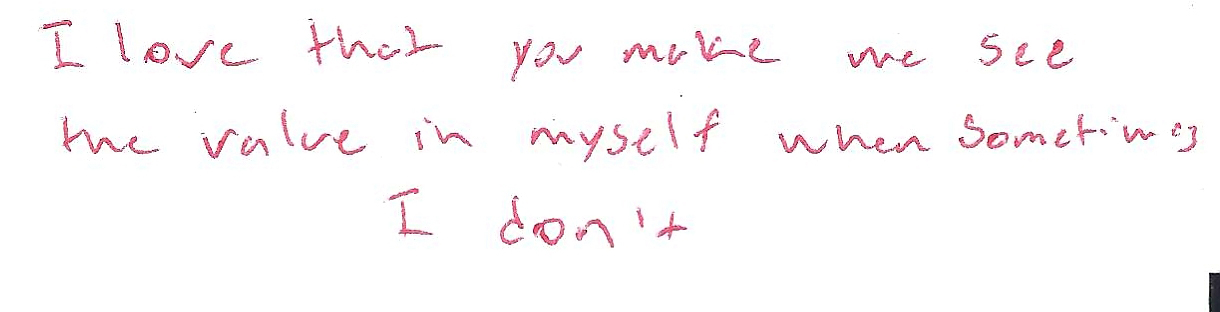 I love that you make me see
the value in myself when sometimes
I don't